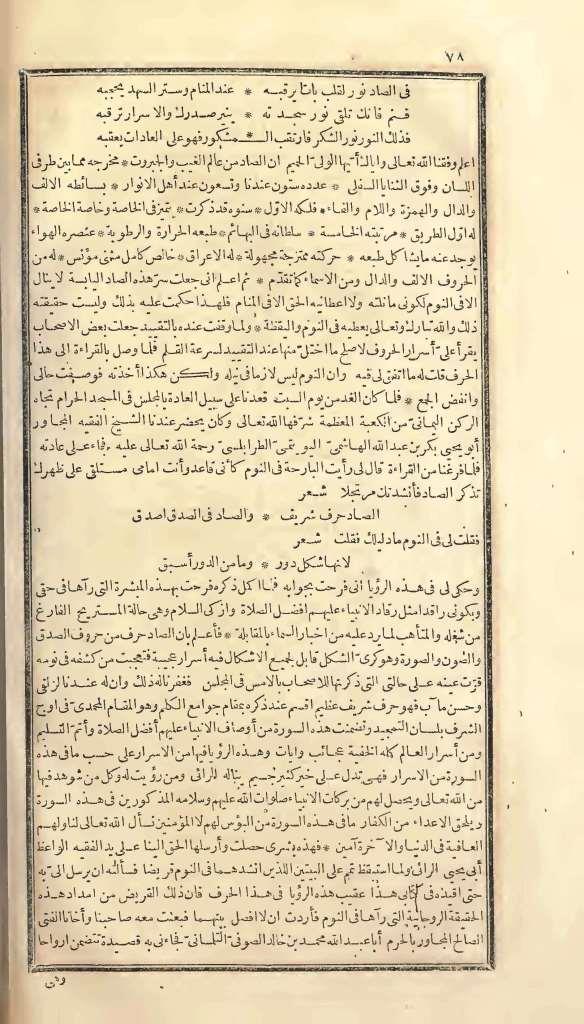 ٧٨
فى الصاد نور لقلب بات يرقبه * عند المنام وستر السهد يحجبه
فنم فانك تلقى نور سجدته * ينير صدرك والاسرار ترقبه
فذلك النور نور الشكر فارتقب الـ * ـمشكور فهو على العادات يعقبه
اعلم وفقنا الله تعالى واياك أيها الولى الحميم ان الصاد من عالم الغيب والجبروت * مخرجه مما بين طرفى
اللسان وفويق الثنايا السفلى * عدده ستون عندنا وتسعون عند أهل الانوار * بسائطه الالف
والدال والهمزة واللام والفاء * فلكه الاوّل * سنوه قد ذكرت * يتميز فى الخاصة وخاصة الخاصة *
له اوّل الطريق * مرتبته الخامسة * سلطانه فى البهائم * طبعه الحرارة والرطوبة * عنصره الهواء
يوجد عنه مايشاكل طبعه * حركته ممتزجة مجهولة * له الاعراق * خالص كامل مثنى مؤنس * له من
الحروف الالف والدال ومن الاسماء كما تقدّم * ثم اعلم انى جعلت سر هذه الصاد اليابسة لا ينال
الا فى النوم لكونى ما نلته ولا اعطانيه الحق الا فى المنام فلهذا حكمت عليه بذلك وليست حقيقته
ذلك والله تبارك وتعالى يعطيه فى النوم واليقظة * ولما وقفت عنده بالتقييد جعلت بعض الاصحاب
يقرأ علىّ أسرار الحروف لاصلح ما اختل منها عند التقييد لسرعة القلم فلما وصل بالقراءة الى هذا
الحرف قلت له ما اتفق لى فيه وان النوم ليس لازما فى نيله ولكن هكذا أخذته فوصفت حالى
وانفض الجمع * فلما كان الغد من يوم السبت قعدنا على سبيل العادة بالمجلس فى المسجد الحرام تجاه
الركن اليمانى من الكعبة المعظمة شرّفها الله تعالى وكان يحضر عندنا الشيخ الفقيه المجاور
أبو يحيى بكر بن عبد الله الهاشمى التويتمى الطرابلسى رحمة الله تعالى عليه فجاء على عادته
فلما فرغنا من القراءة قال لى رأيت البارحة فى النوم كأنى قاعد وأنت امامى مستلقى على ظهرك
تذكر الصاد فأنشدتك مرتجلا شعر
الصاد حرف شريف * والصاد فى الصدق اصدق
فقلت لى فى النوم ما دليلك فقلت شعر
لانها شكل دور * وما من الدور أسبق
وحكى لى فى هذه الرؤيا أنى فرحت بجوابه فلما اكمل ذكره فرحت بهذه المبشرة التى رآها فى حقى
وبكونى راقدا مثل رقاد الانبياء عليهم افضل الصلاة وازكى السلام وهى حالة المستريح الفارغ
من شغله والمتأهب لما يرد عليه من اخبار السماء بالمقابلة * فاعلم بأن الصاد حرف من حروف الصدق
والصون والصورة وهو كرىّ الشكل قابل لجميع الاشكال فيه أسرار عجيبة فتعجبت من كشفه فى نومه
قرّت عينه على حالتى التى ذكرتها للاصحاب بالامس فى المجلس فغفرنا له ذلك وان له عندنا لزلفى
وحسن مآب فهو حرف شريف عظيم اقسم عند ذكره بمقام جوامع الكلم وهو المقام المحمدى فى اوج
الشرف بلسان التمجيد وتضمنت هذه السورة من أوصاف الانبياء عليهم أفضل الصلاة وأتم التسليم
ومن أسرار العالم كله الخفية عجائب وايات وهذه الرؤيا فيها من الاسرار على حسب ما فى هذه
السورة من الاسرار فهى تدل على خير كثير جسيم يناله الرائى ومن رؤيت له وكل من شوهد فيها
من الله تعالى ويحصل لهم من بركات الانبياء صلوات الله عليهم وسلامه المذكورين فى هذه السورة
ويلحق الاعداء من الكفار ما فى هذه السورة من البؤس لهم لا للمؤمنين نسأل الله تعالى لنا ولهم
العافية فى الدنيا والآخرة آمين * فهذه بشرى حصلت وأرسلها الحق الينا على يد الفقيه الواعظ
أبى يحيى الرائى ولما استيقظ تمم على البيتين اللذين انشدهما فى النوم قريضا فسألته ان يرسل الى به
حتى اقيده فى كتابى هذا عقيب هذه الرؤيا فى هذا الحرف فان ذلك القريض من امداد هذه
الحقيقة الروحانية التى رآها فى النوم فأردت ان لا افصل بينهما فبعثت معه صاحبنا وأخانا الفتى
الصالح المجاور بالحرم أبا عبد الله محمد بن خالد الصوفى التلمسانى فجاءنى به قصيدة تتضمن ارواحا